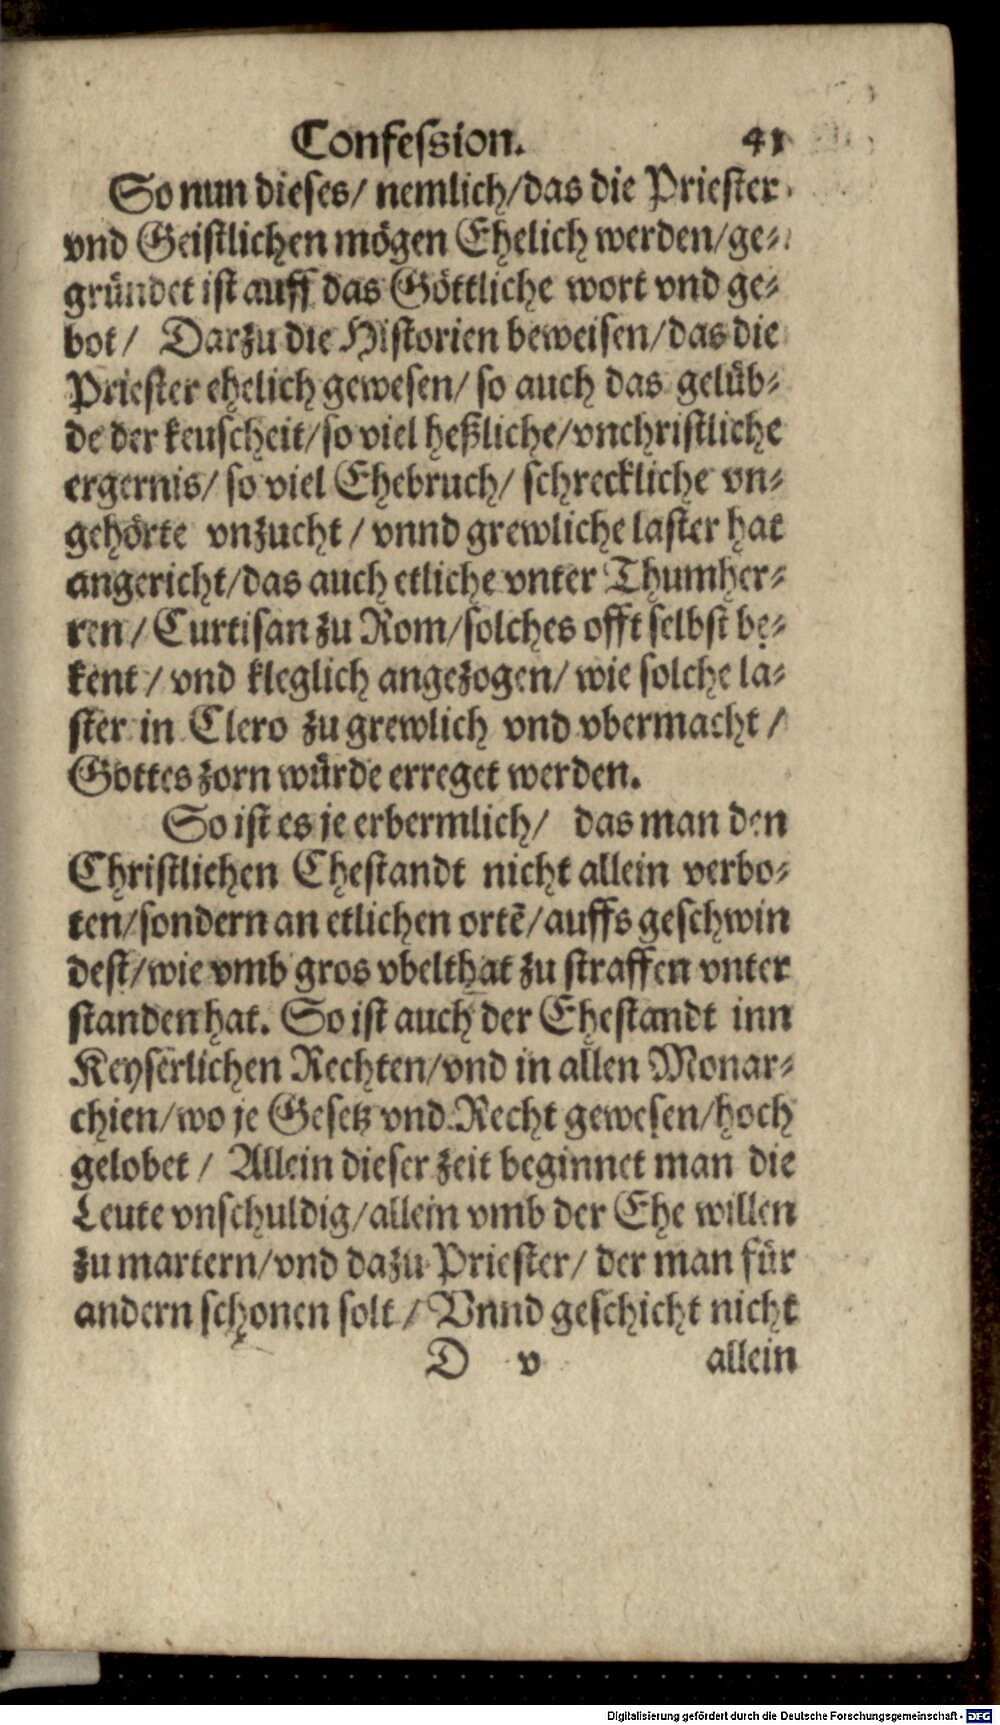 Confession. 41
So nun dieses/ nemlich/das die Priester
vnd Geistlichen mögen Ehelich werden/ge⸗
gründet ist auff das Göttliche wort vnd ge⸗
bot/ Darzu die Historien beweisen/das die
Priester ehelich gewesen/ so auch das gelüb⸗
de der keuscheit/so viel heßliche/vnchristliche
ergernis/ so viel Ehebruch/ schreckliche vn⸗
gehörte vnzucht/ vnnd grewliche laster hat
angericht/das auch etliche vnter Thumher⸗
ren/ Curtisan zu Rom/solches offt selbst be⸗
kent/ vnd kleglich angezogen/ wie solche la⸗
ster in Clero zu grewlich vnd vbermacht/
Gottes zorn würde erreget werden.
So ist es je erbermlich/ das man den
Christlichen Ehestandt nicht allein verbo⸗
ten/sondern an etlichen ortē/auffs geschwin
dest/wie vmb gros vbelthat zu straffen vnter
standen hat. So ist auch der Ehestandt inn
Keyserlichen Rechten/vnd in allen Monar⸗
chien/wo je Gesetz vnd Recht gewesen/hoch
gelobet/ Allein dieser zeit beginnet man die
Leute vnschuldig/allein vmb der Ehe willen
zu martern/vnd dazu Priester/ der man für
andern schonen solt/ Vnnd geschicht nicht
D v allein
Digitalisierung gefördert durch die Deutsche Forschungsgemeinschaft - DFG